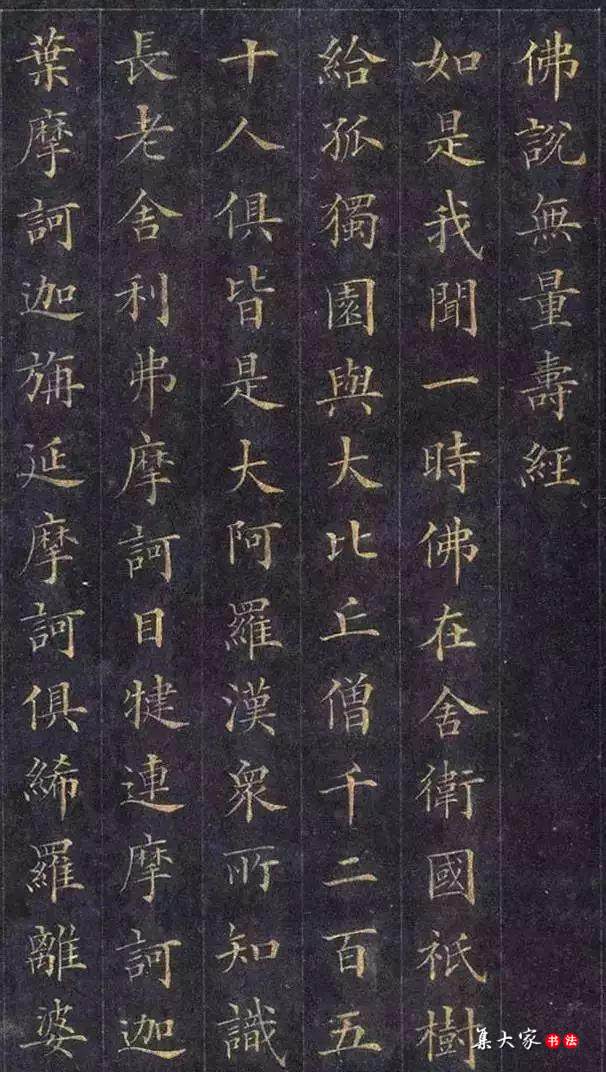 佛說無量壽經
如是我聞一時佛在舍衛國祇樹
給孤獨園與大比丘僧千二百五
十人俱皆是大阿羅漢眾所知識
長老舍利弗摩訶目犍連摩訶迦
葉摩訶迦旃延摩訶俱絺羅離婆
集大家书法